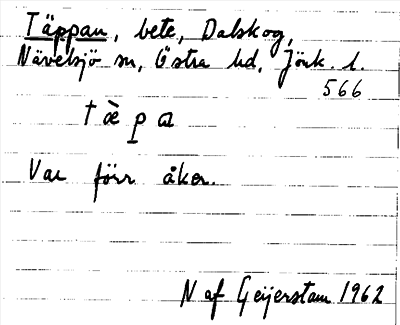 Täppan, bete, Dalskog,
Nävelsjö sn, Östra hd, Jönk. l.
566
tæ̀p̲a
Var förr åker.
N af Geijerstam 1962